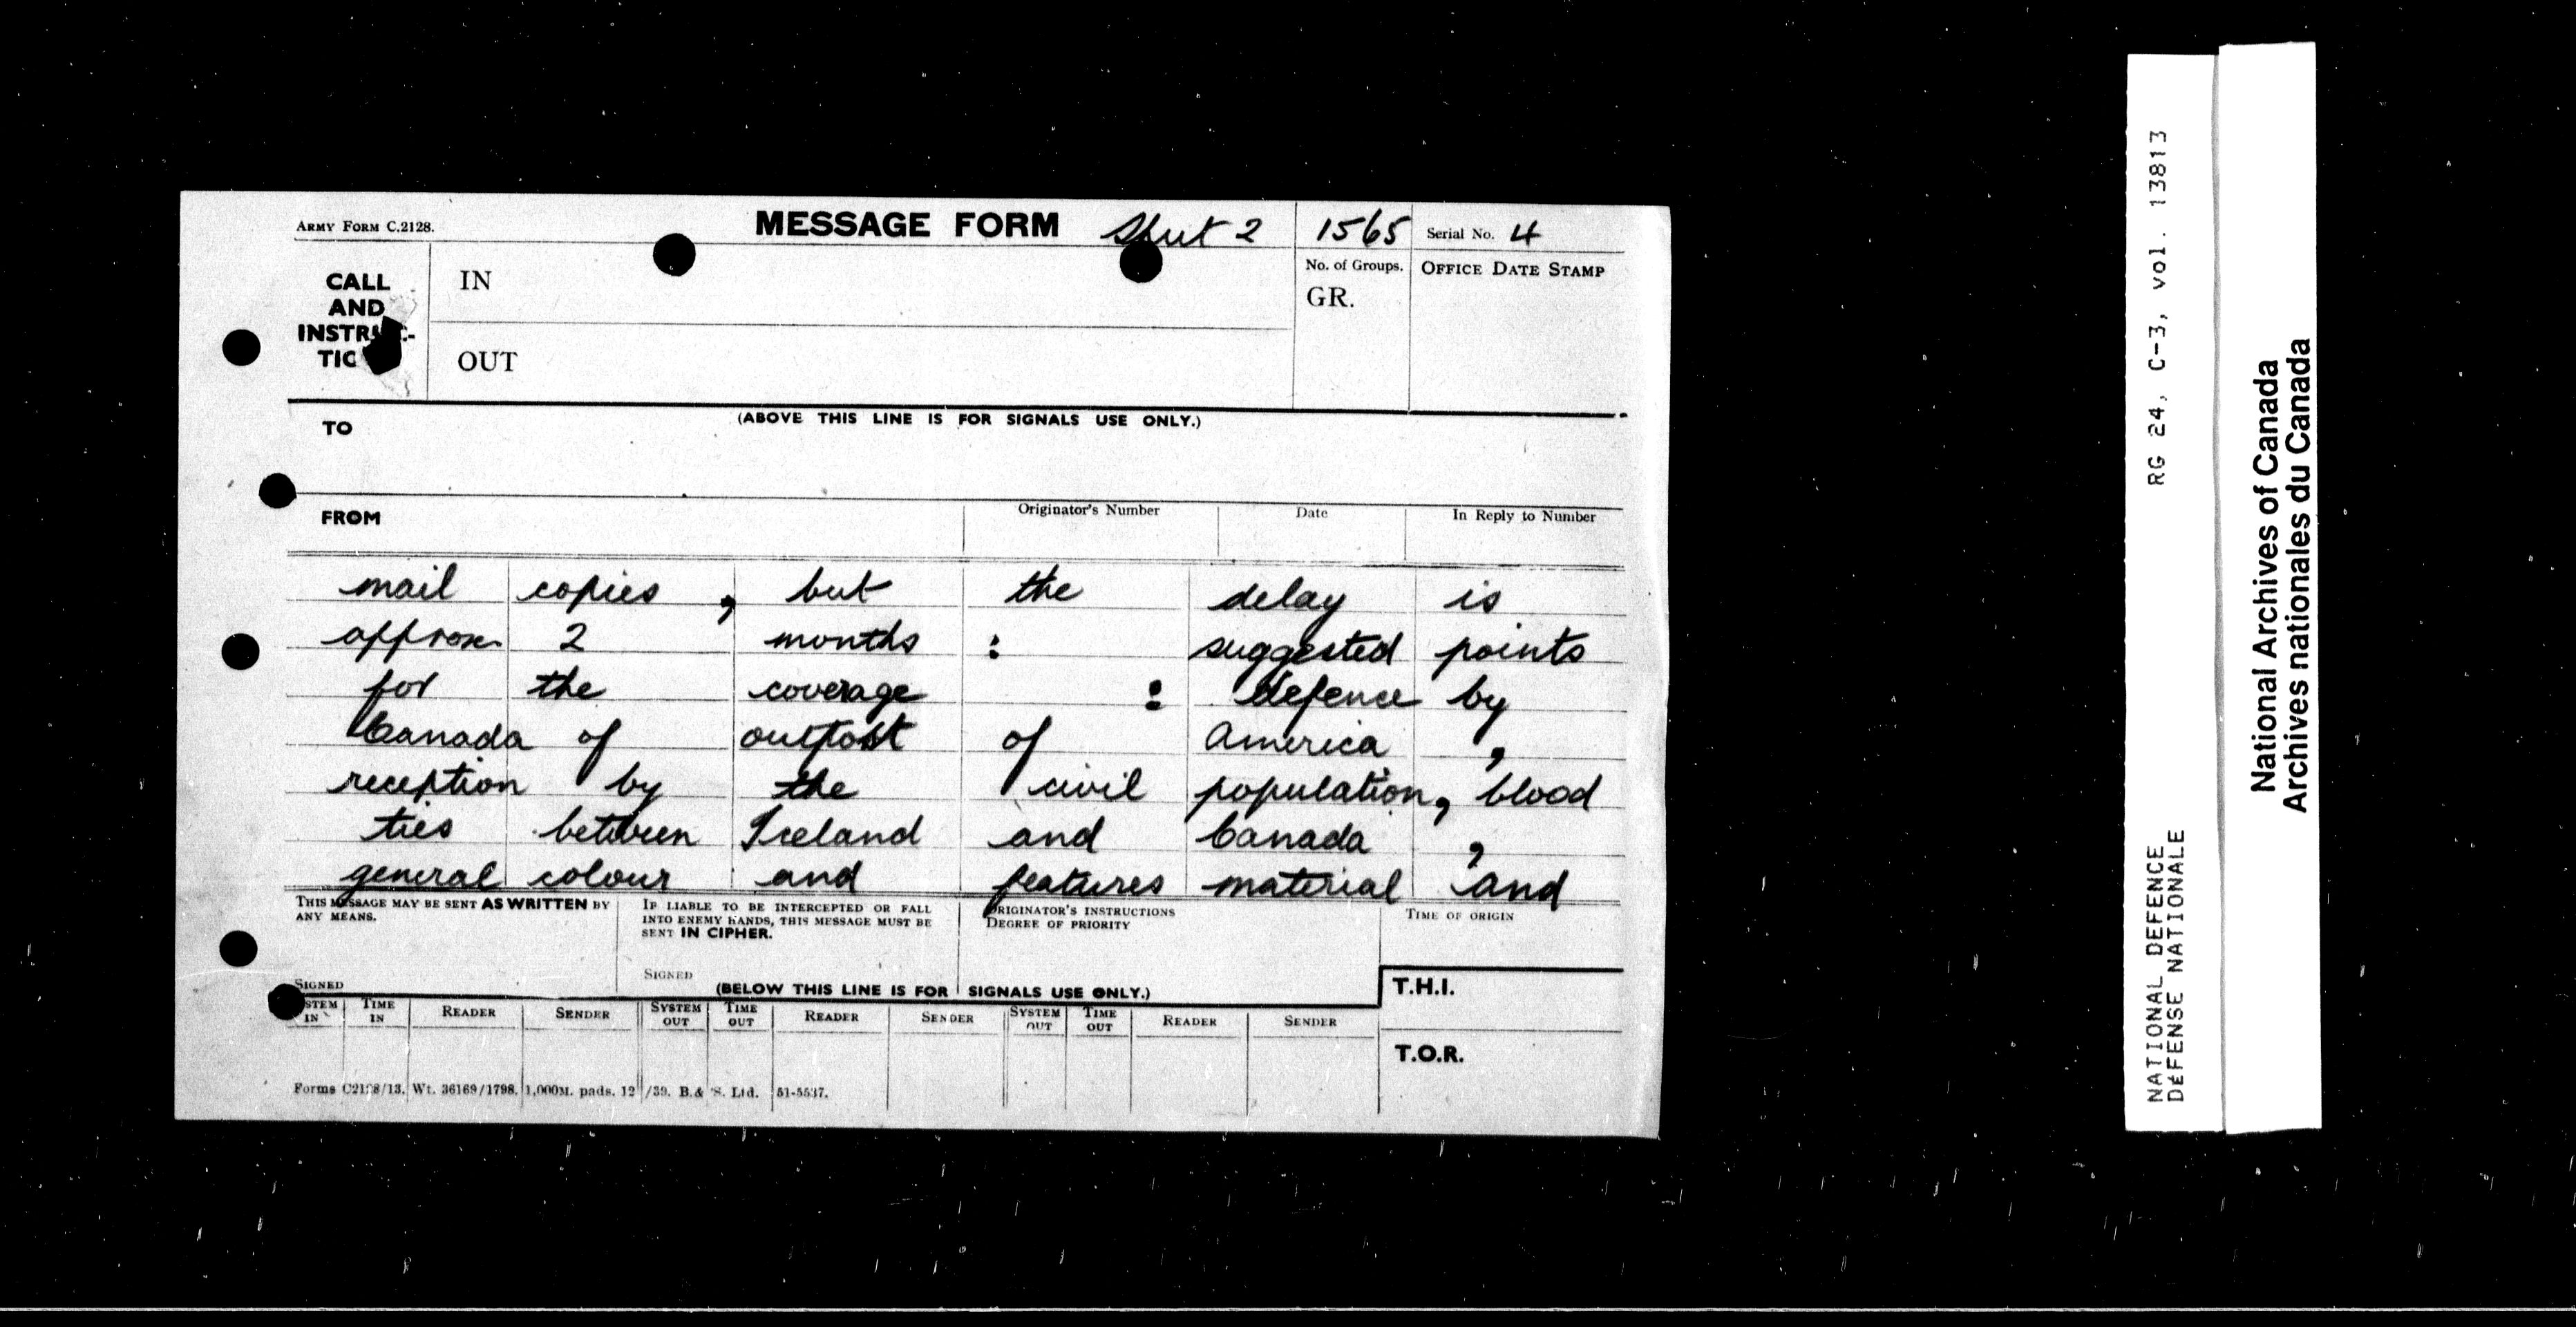 ARMY FORM C.2128.
MESSAGE FORM
Sheet 2
1565
Serial No. 4
CALL
AND
INSTRUC-
TIO
IN
OUT
No. of Groups.
GR.
OFFICE DATE STAMP
(ABOVE THIS LINE IS FOR SIGNALS USE ONLY.)
TO
FROM
Originator's Number
Date
In Reply to Number
mail copies , but the delay is
approx 2 months : suggested points
for the coverage : defence by
Canada of outpost of America ,
reception by the civil population, blood
ties between Iceland and Canada ,
general colour and features material and
THIS MESSAGE MAY BE SENT AS WRITTEN BY
ANY MEANS.
SIGNED
IF LIABLE TO BE INTERCEPTED OR FALL
INTO ENEMY HANDS, THIS MESSAGE MUST BE
SENT IN CIPHER.
SIGNED
ORIGINATOR'S INSTRUCTIONS
DEGREE OF PRIORITY
TIME OF ORIGIN
(BELOW THIS LINE IS FOR SIGNALS USE ONLY.)
T.H.I.
T.O.R.
SYSTEM IN
TIME IN
READER
SENDER
SYSTEM OUT
TIME OUT
READER
SENDER
SYSTEM OUT
TIME OUT
READER
SENDER
Forms C2128/13. Wt. 36169/1798. 1,000M. pads. 12/39. B.& S. Ltd. 51-5537.
RG 24, C-3, vol. 13813
NATIONAL DEFENCE
DÉFENSE NATIONALE
National Archives of Canada
Archives nationales du Canada